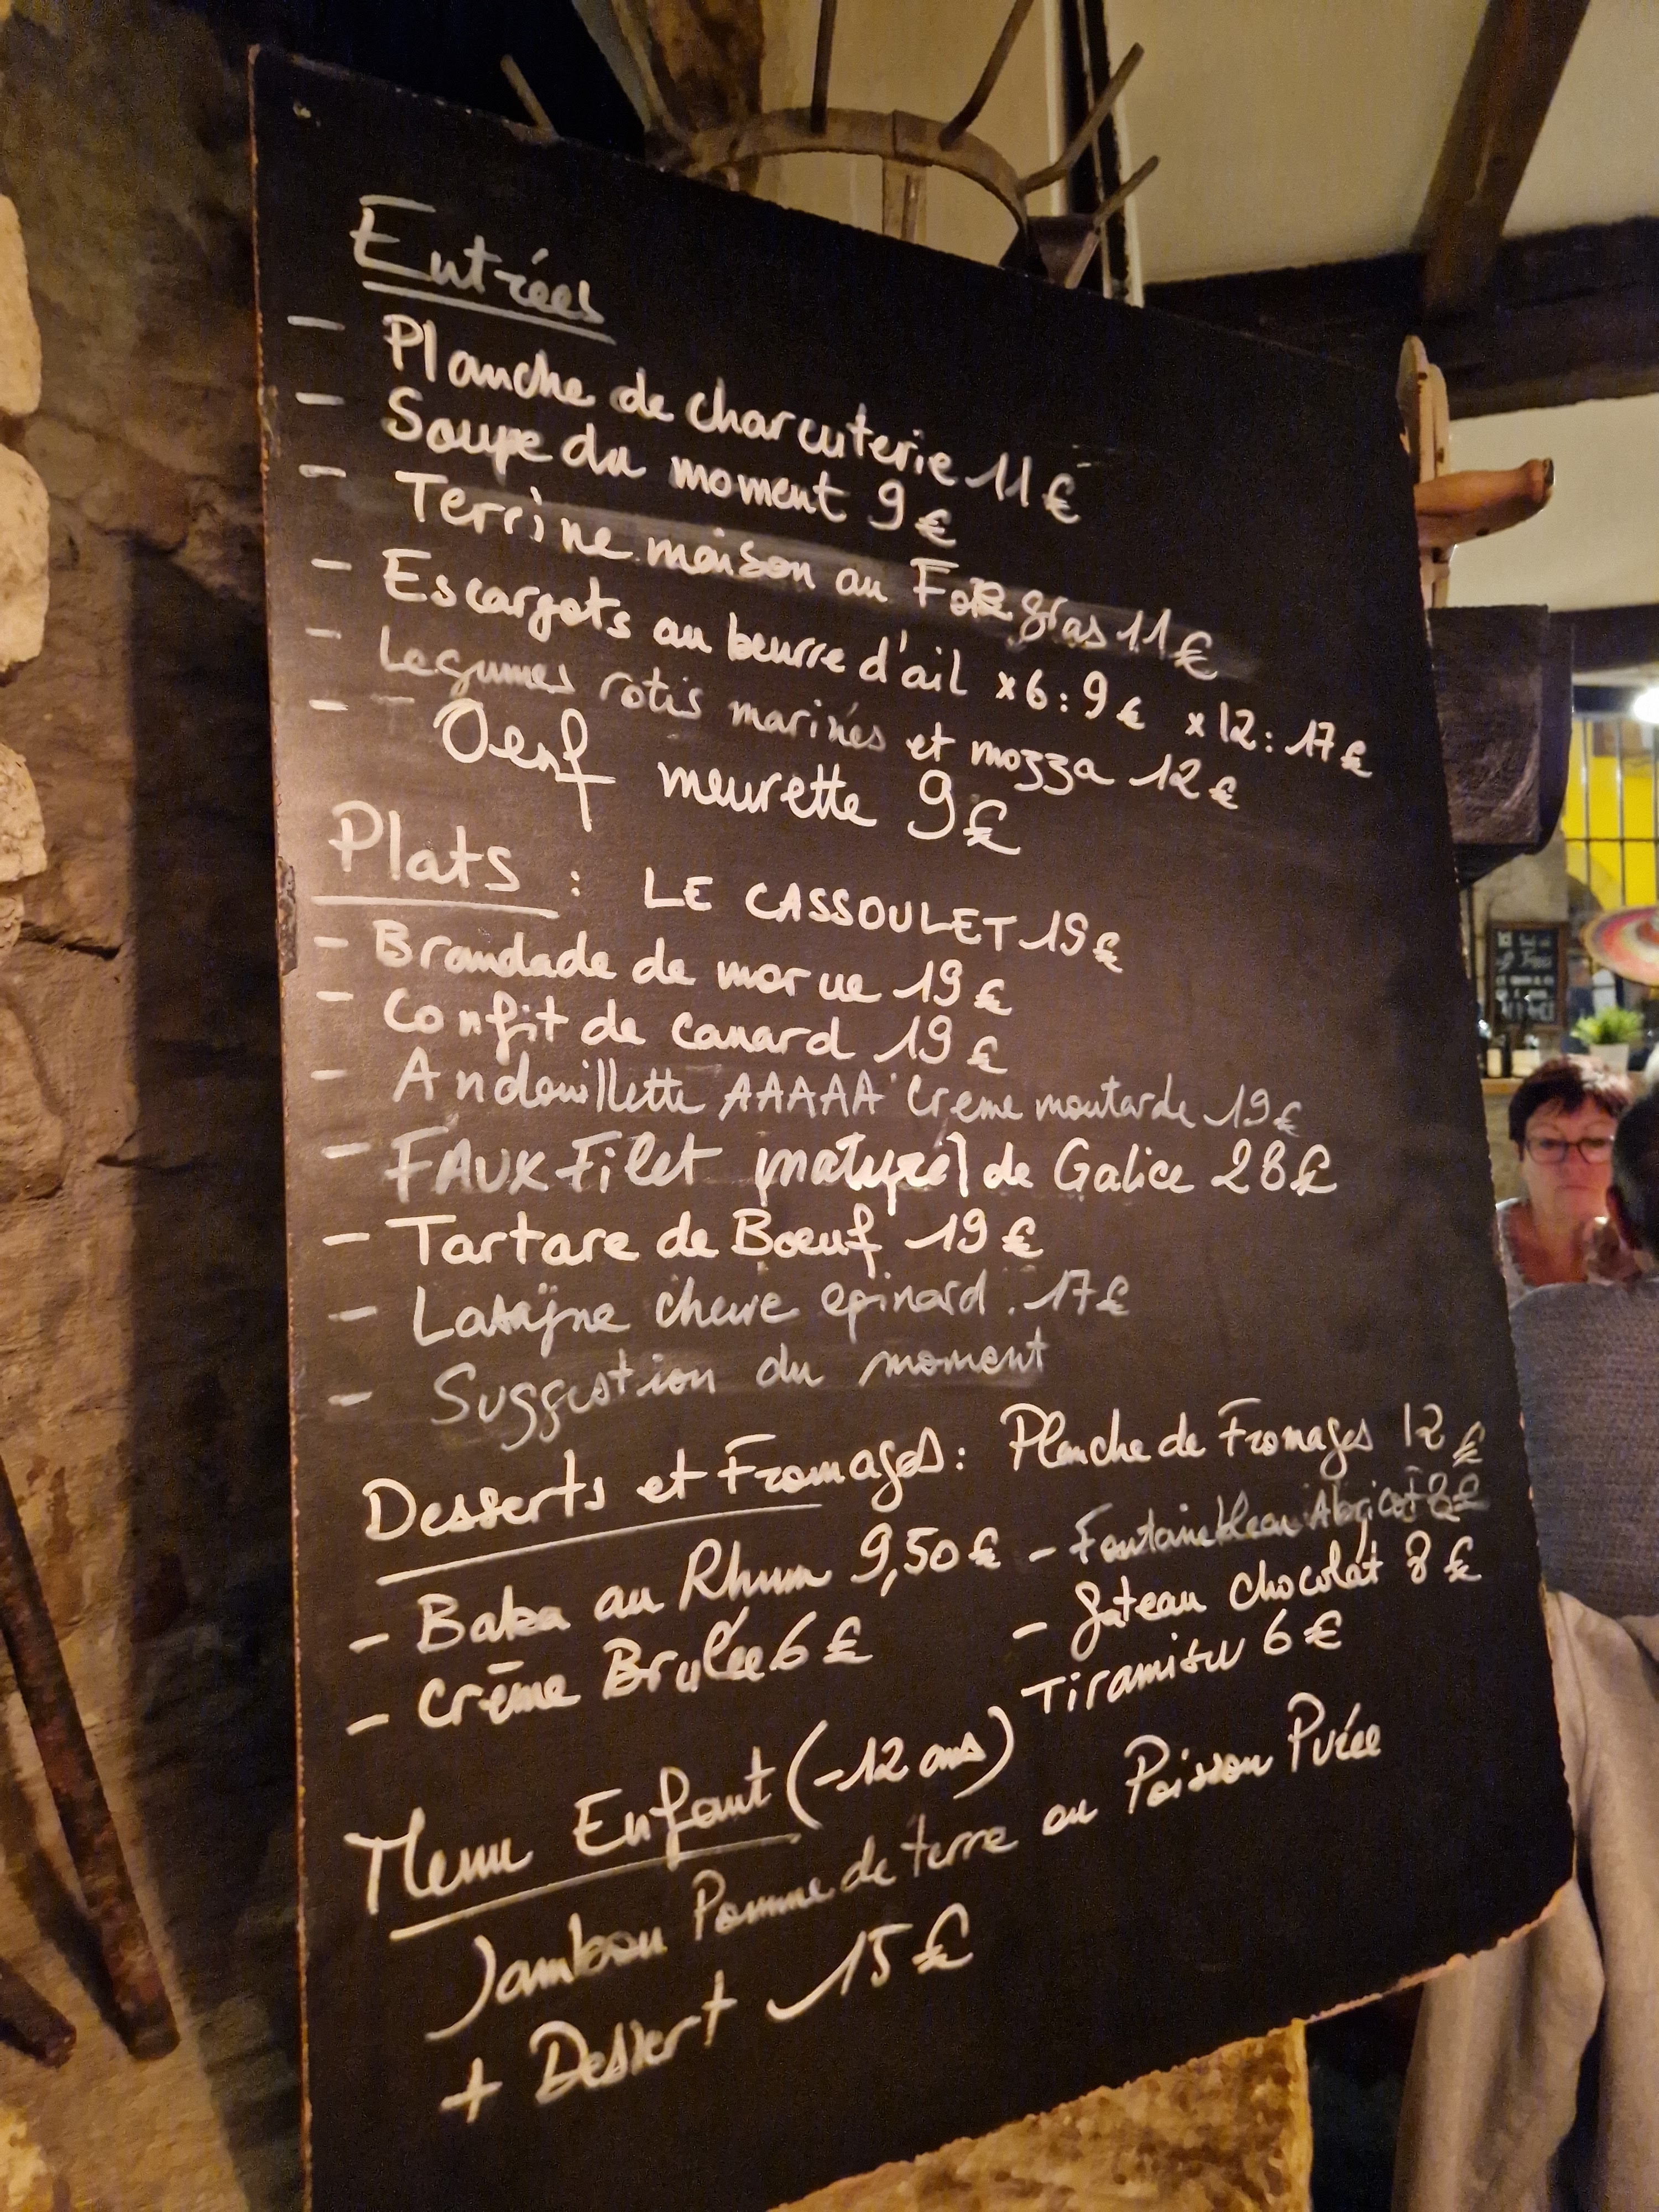 Entrées
- Planche de charcuterie 11€
- Soupe du moment 9€
- Terrine maison au Foie gras 11€
- Escargots au beurre d'ail x6: 9€ x12: 17€
- Legumes rotis marinés et mozza 12€
- Oeuf meurette 9€
Plats : LE CASSOULET 19€
- Brandade de morue 19€
- Confit de canard 19€
- Andouillette AAAAA Crème moutarde 19€
- FAUX Filet maturé de Galice 28€
- Tartare de Bœuf 19€
- Lasagne chevre epinard. 17€
- Suggestion du moment
Desserts et Fromages: Planche de Fromages 12€
- Baba au Rhum 9,50€ - Fontainebleau Abricot 8€
- Crème Brulée 6€ - Gateau chocolat 8€
Tiramisu 6€
Menu Enfant (-12 ans)
Jambon Pomme de terre ou Poisson Purée
+ Dessert 15€